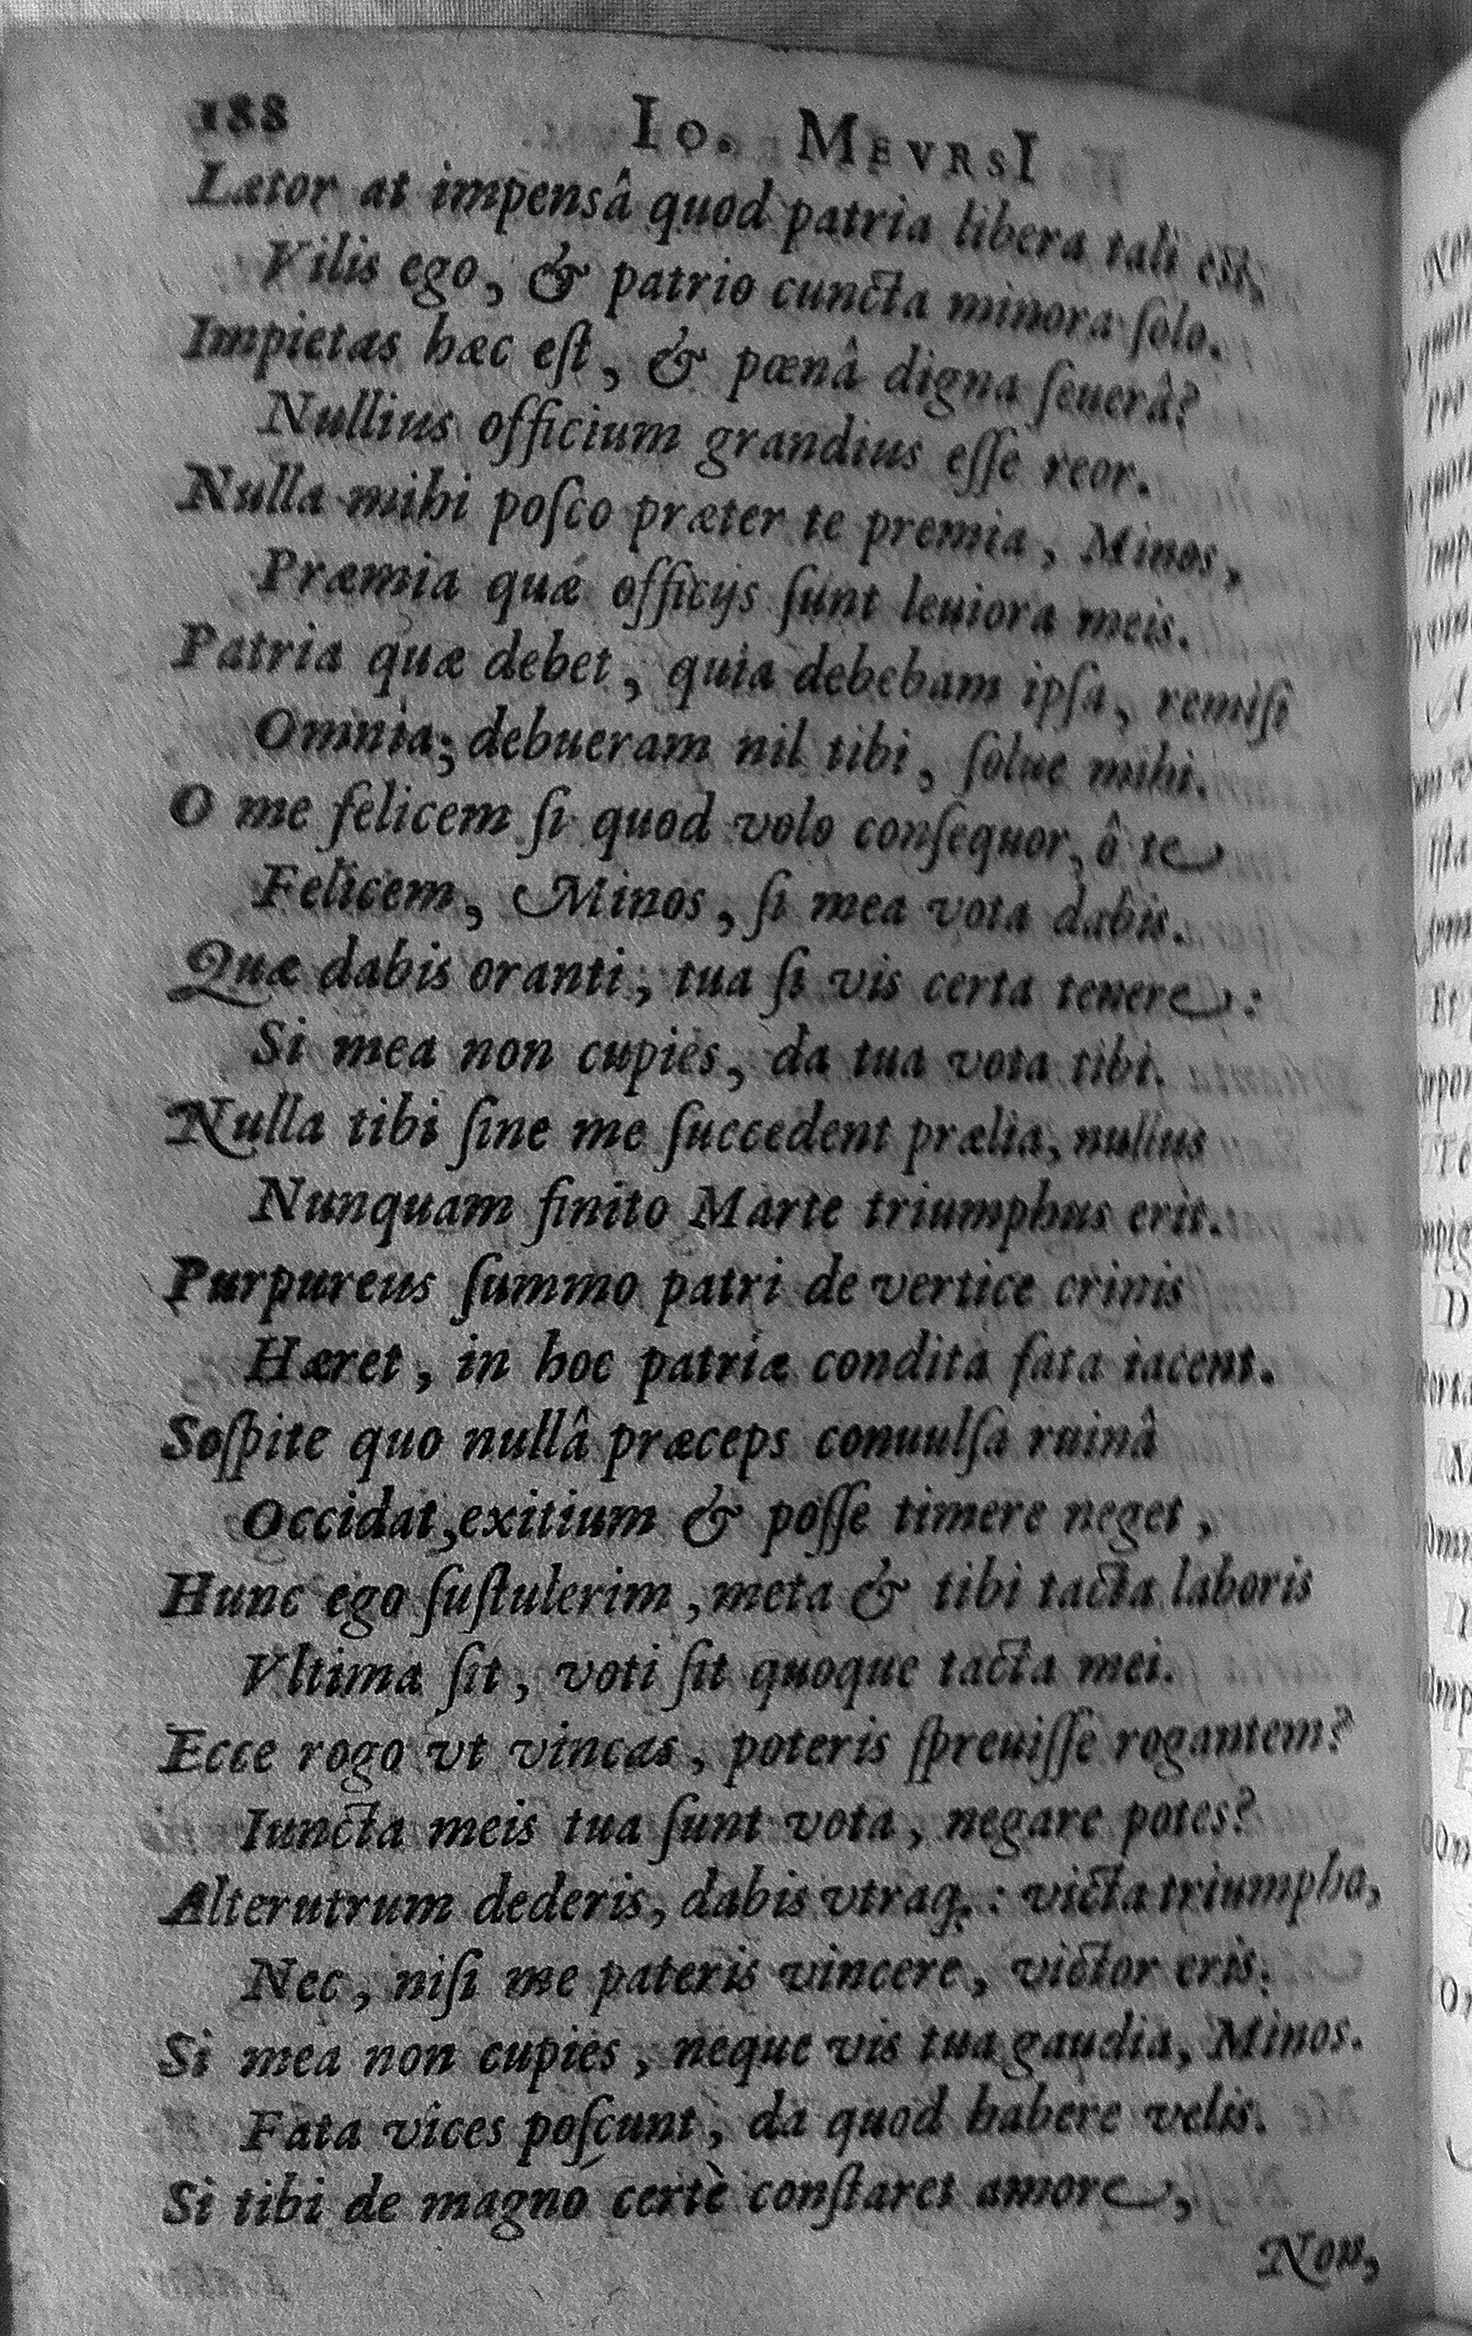 188 Io. MEVRSI
Lætor at impensâ quod patria libera tali est,
Vilis ego, & patrio cuncta minora ſolo.
Impietas hæc eſt, & pœnâ digna ſeuerâ?
Nullius officium grandius eſſe reor.
Nulla mihi poſco præter te premia, Minos,
Præmia quæ officijs ſunt leuiora meis.
Patria quæ debet, quia debebam ipſa, remiſi
Omnia; debueram nil tibi, ſolue mihi.
O me felicem ſi quod volo conſequor, ô te
Felicem, Minos, ſi mea vota dabis.
Quæ dabis oranti, tua ſi vis certa tenere:
Si mea non cupies, da tua vota tibi.
Nulla tibi ſine me ſuccedent prælia, nullus
Nunquam finito Marte triumphus erit.
Purpureus ſummo patri de vertice crinis
Hæret, in hoc patriæ condita fata iacent.
Soſpite quo nullâ præceps conuulſa ruinâ
Occidat, exitium & poſſe timere neget,
Hunc ego ſuſtulerim, meta & tibi tacta laboris
Vltima ſit, voti ſit quoque tacta mei.
Ecce rogo vt vincas, poteris ſpreuiſſe rogantem?
Iuncta meis tua ſunt vota, negare potes?
Alterutrum dederis, dabis vtraq;: victa triumpha,
Nec, niſi me pateris vincere, victor eris.
Si mea non cupies, neque vis tua gaudia, Minos.
Fata vices poſcunt, da quod habere velis.
Si tibi de magno certè conſtaret amore,
Non,